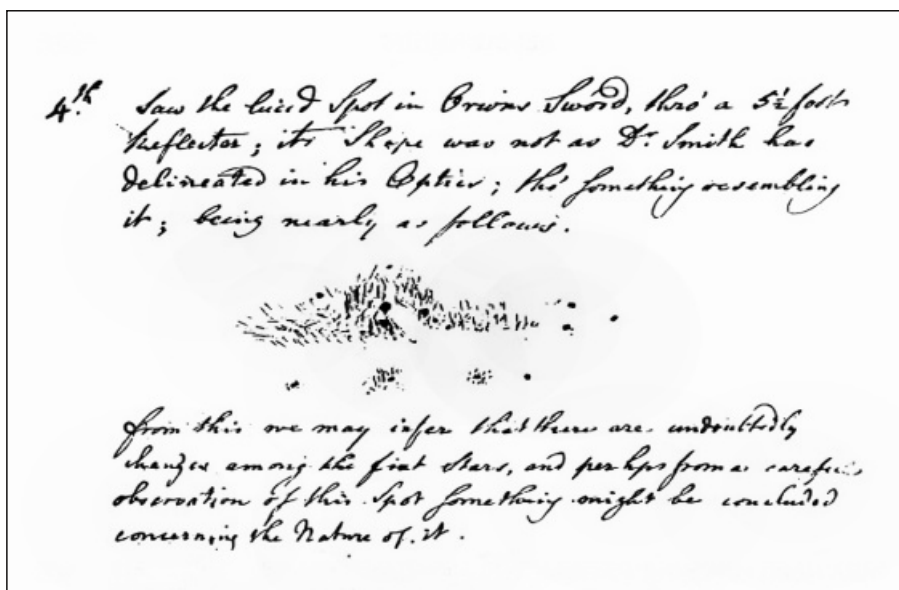 4.th Saw the lucid Spot in Orions Sword, thro' a 5½ foot
Reflector; its Shape was not as Dr. Smith has
delineated in his Optics; tho' something resembling
it; being nearly as follows.
from this we may infer that there are undoubtedly
changes among the fixt Stars, and perhaps from a careful
observation of this Spot something might be concluded
concerning the Nature of it.